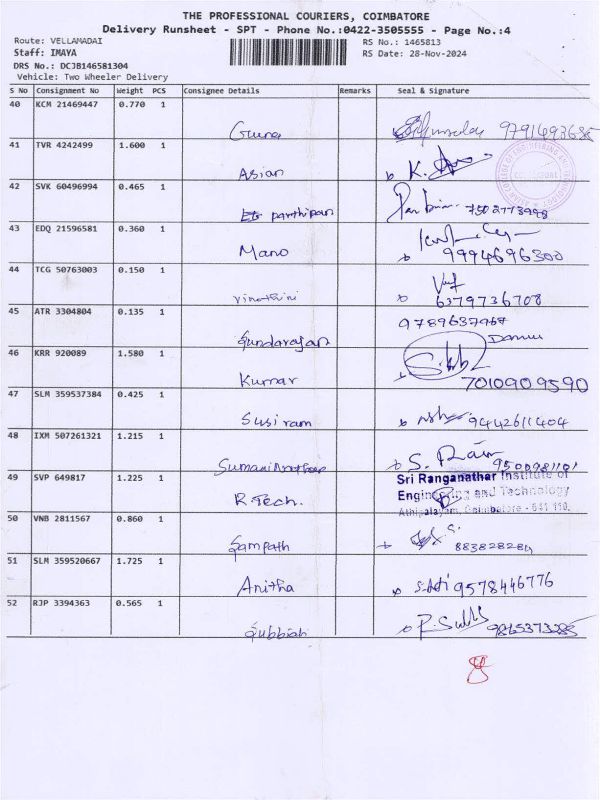 THE PROFESSIONAL COURIERS, COIMBATORE
Delivery Runsheet - SPT - Phone No.:0422-3505555 - Page No.:4
Route: VELLAMADAI
RS No.: 1465813
Staff: IMAYA
RS Date: 28-Nov-2024
DRS No.: DCJB146581304
Vehicle: Two Wheeler Delivery
S No Consignment No Weight PCS Consignee Details Remarks Seal & Signature
40 KCM 21469447 0.770 1
Guna
41 TVR 4242499 1.600 1
Asian K.
42 SVK 60496994 0.465 1
parthipan 7502773998
43 EDQ 21596581 0.360 1
Mano 9994696300
44 TCG 50763003 0.150 1
Vinothini 6379736708
45 ATR 3304804 0.135 1
Sundarajan
46 KRR 920089 1.580 1
Kumar 7010909590
47 SLM 359537384 0.425 1
Susiram 9442611404
48 IXM 507261321 1.215 1
S. Ram 9500981101
49 SVP 649817 1.225 1
Sri Ranganathar Institute of
Engineering and Technology
R Tech.
Athipalayam, Coimbatore - 641 110.
50 VNB 2811567 0.860 1
Sampath
51 SLM 359520667 1.725 1
Anitha 9578446776
52 RJP 3394363 0.565 1
Subbiah 9865373285